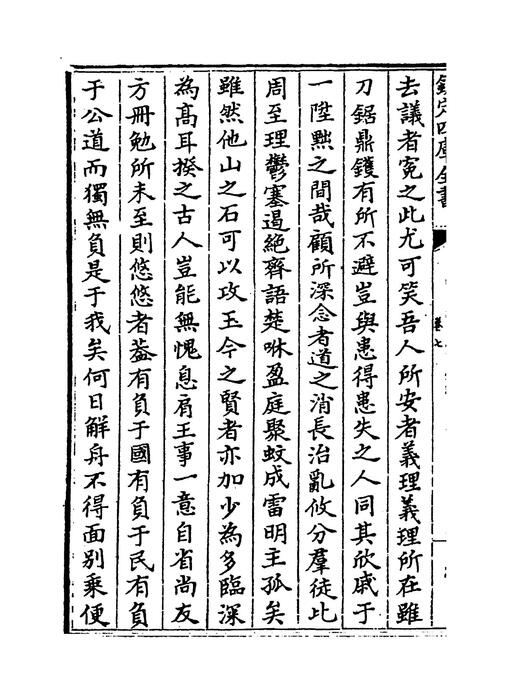 欽定四庫全書
卷七
去議者寃之此尤可笑吾人所安者義理義理所在雖
刀鋸鼎鑊有所不避豈與患得患失之人同其欣戚于
一陞黜之間哉顧所深念者道之消長治亂攸分羣徒比
周至理鬱塞遏絕齊語楚咻盈庭聚蚊成雷明主孤矣
雖然他山之石可以攻玉今之賢者亦加少為多臨深
為高耳揆之古人豈能無愧息肩王事一意自省尚友
方冊勉所未至則悠悠者葢有負于國有負于民有負
于公道而獨無負是于我矣何日解舟不得面别乗便